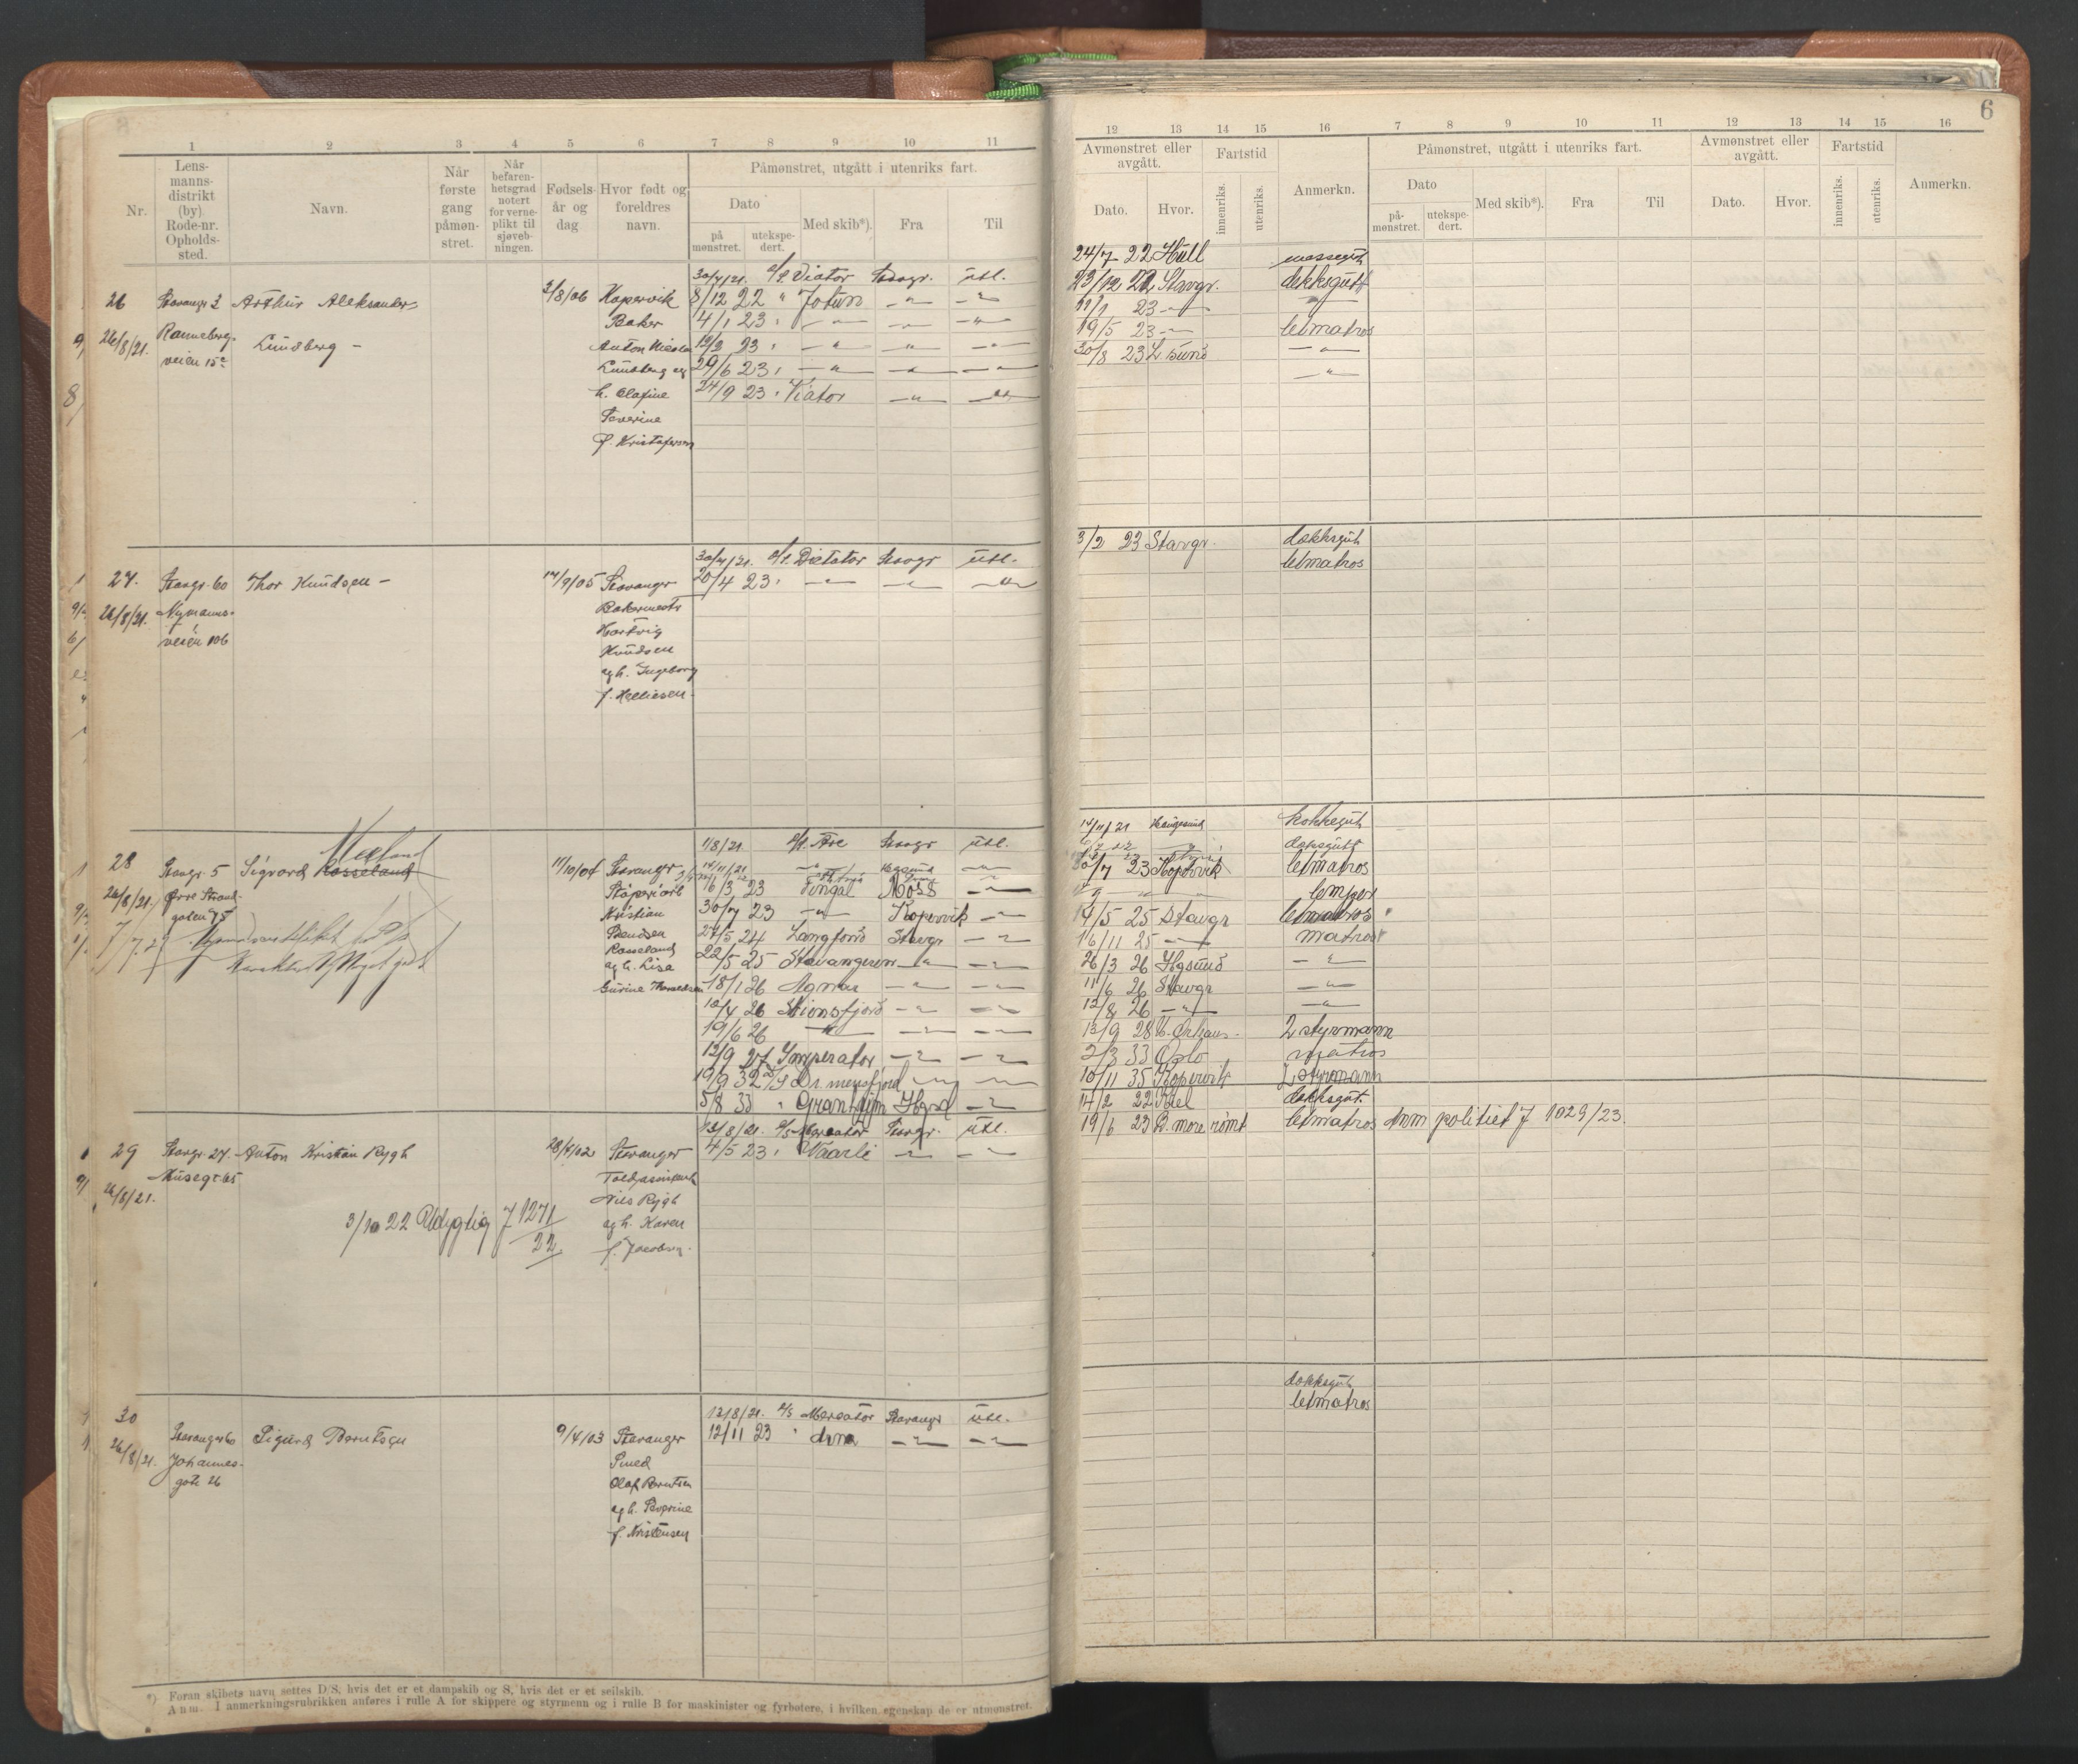 6
1 2 3 4 5 6 7 8 9 10 11
Nr.
Lens-
manns-
distrikt
(by)
Rode-nr.
Opholds-
sted.
Navn.
Når
første
gang
påmøn-
stret.
Når
befaren-
hetsgrad
notert
for verne-
plikt til
sjøveb-
ningen.
Fødsels-
år og
dag
Hvor født og
foreldres
navn.
Påmønstret, utgått i utenriks fart.
Dato
på
mønstret.
utekspe-
dert.
Med skib*).
Fra
Til
12 13 14 15 16 7 8 9 10 11 12 13 14 15 16
Avmønstret eller
avgått.
Dato. Hvor.
Fartstid
innenriks. utenriks.
Anmerkn.
Påmønstret, utgått i utenriks fart.
Dato
på-
mønstret.
utekspe-
dert.
Med skib*).
Fra
Til
Avmønstret eller
avgått.
Dato. Hvor.
Fartstid
innenriks. utenriks.
Anmerkn.
26 Stavangr 3 Arthur Aleksander
26/8/21. Ranneberg-
veien 15a
Lundberg
3/8/06 Kopervik
Baker
Anton Nicolai
Lundberg og
h. Olafine
Severine
f. Kristofersen
30/4/21. Viator Stavgr. utl.
8/12 22 " Jotun — " — — " —
4/1 23 " — " — — " — — " —
12/2 23 " — " — — " — — " —
29/6 23 " — " — — " — — " —
24/9 23 " Viator — " — — " —
24/7 22 Hull messegut
23/12 22 Stavgr. dekksgutt
11/1 23 — " — — " —
19/5 23 — " — letmatros
30/8 23 L sund — " —
— " —
27. Stavgr. 60 Thor Knudsen
26/8/21. Nymanns-
veien 106
14/9/05 Stavanger
Bakermestr
Hartvig
Knudsen
og h. Ingeborg
f. Helliesen
30/4/21. Dictator Stavgr utl.
20/4 23 " — " — — " — — " —
3/2 23 Stavgr. dekksgut
letmatros
28 Stavgr. 5 Sigvard Rosseland
Meeland
26/8/21. Øvre Strand-
gaten 75
11/10/04 Stavanger
Støperiarb
Kristian
Bendsen
Rosseland
og h. Lisa
Gurine Thorvaldsen
1/8/21 Are Stavgr utl.
14/11/21 — " — Hgsund — " —
16/3 23 Fingal Moss — " —
30/7 23 — " — Kopervik — " —
27/5 24 Langfond Stavgr — " —
22/5 25 Stavangeren — " — — " —
18/1 26 Agnes — " — — " —
10/4 26 Stionsfjord — " — — " —
19/6 26 — " — — " — — " —
12/9 27 Imperator — " — — " —
19/9 32 D/S Dr mensfjord — " — — " —
5/8 33 " Granheim Hgsd — " —
14/11/21 Haugesund kokkegut
dekksgutt
30/7 23 Kopervik letmatros
lemper
14/5 25 Stavgr letmatros
16/11 25 — " — matros
26/3 26 Hgsund — " —
11/6 26 Stavgr — " —
12/8 26 — " — — " —
13/9 28 2 styrmann
2/3 33 Oslo matros
10/11 35 Kopervik 2 styrmann
29 Stavgr. 27. Anton Kristian Rygh
26/8/21. Musegt 65
3/10 22 Udygtig J 1271/22
28/4/02 Stavanger
Toldassistent
Nils Rygh
og h. Karen
f. Jacobsen
12/8/21. D/S Mercator Stavgr. utl.
4/5 23 " Vaarli — " — — " —
14/2 22 Kiel dekksgut.
19/6 23 B. more rømt letmatros Anm politiet J 1029/23.
30 Stavanger 60 Sigurd Berntsen
26/8/21. Johannes-
gate 26
9/4/03 Stavanger
Smed
Olaf Berntsen
og h. Severine
f. Kristensen
12/8/21. D/S Mercator Stavangr utl.
12/11 23 " — " — — " —
dekksgut
letmatros
*) Foran skibets navn settes D/S, hvis det er et dampskib og S, hvis det er et seilskib.
Anm. I anmerkningsrubrikken anføres i rulle A for skippere og styrmenn og i rulle B for maskinister og fyrbøtere, i hvilken egenskap de er utmønstret.